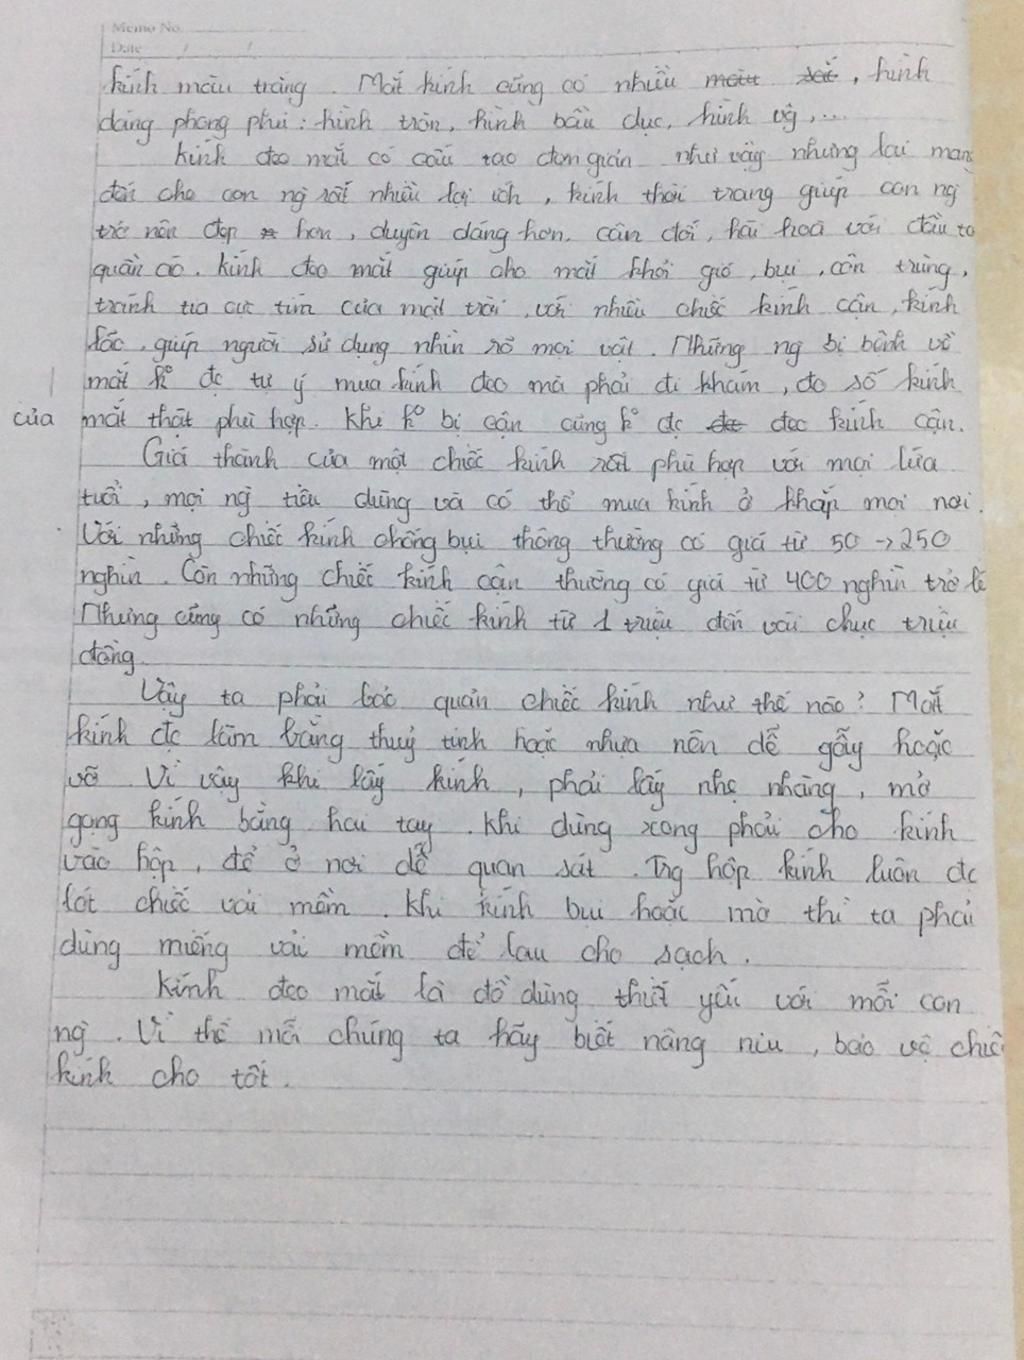 Memo No.
Date / /
kính màu trắng. Mắt kính cũng có nhiều màu sắc, hình
dáng phong phú: hình tròn, hình bầu dục, hình vg,...
Kính đeo mắt có cấu tạo đơn giản như vậy nhưng lại mang
đến cho con ng rất nhiều lợi ích, kính thời trang giúp con ng
trở nên đẹp hơn, duyên dáng hơn. cân đối, hài hoà với đầu tó
quần áo. kính đeo mắt giúp cho mắt khỏi gió, bụi, côn trùng,
tránh tia cực tím của mặt trời, với nhiều chiếc kính cận, kính
lão, giúp người sử dụng nhìn rõ mọi vật. Những ng bị bệnh về
mắt ko đc tự ý mua kính đeo mà phải đi khám, đo số kính
của mắt thật phù hợp. Khi ko bị cận cũng ko đc đeo kính cận.
Giá thành của một chiếc kính rất phù hợp với mọi lứa
tuổi, mọi ng tiêu dùng và có thể mua kính ở khắp mọi nơi.
Với những chiếc kính chống bụi thông thường có giá từ 50 → 250
nghìn. Còn những chiếc kính cận thường có giá từ 400 nghìn trở lê
Nhưng cũng có những chiếc kính từ 1 triệu đến vài chục triệu
đồng.
Vậy ta phải bảo quản chiếc kính như thế nào? Mắt
kính đc làm bằng thuỷ tinh hoặc nhựa nên dễ gẫy hoặc
vỡ. Vì vậy khi lấy kính, phải lấy nhẹ nhàng, mở
gọng kính bằng hai tay. Khi dùng xong phải cho kính
vào hộp, để ở nơi dễ quan sát. Trg hộp kính luôn đc
lót chiếc vải mềm. Khi kính bụi hoặc mờ thì ta phải
dùng miếng vải mềm để lau cho sạch.
Kính đeo mắt là đồ dùng thiết yếu với mỗi con
ng. Vì thế mỗi chúng ta hãy biết nâng niu, bảo vệ chiế
kính cho tốt.